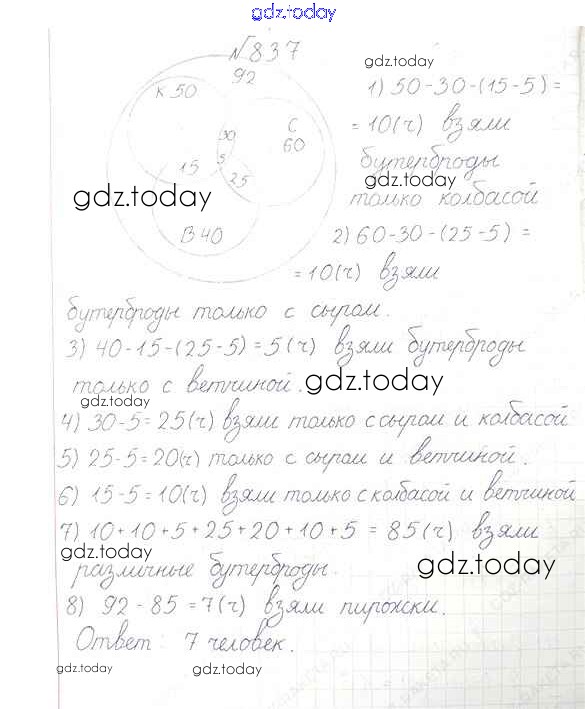 gdz.today
№837
92
gdz.today
К 50
1) 50-30-(15-5)=
30
С
60
= 10(ч) взяли
бутерброды
5
15
25
gdz.today
gdz.today
только колбасой
В 40
2) 60-30-(25-5) =
= 10(ч) взяли
бутерброды только с сыром.
3) 40-15-(25-5)=5(ч) взяли бутерброды
только с ветчиной.
gdz.today
gdz.today
4) 30-5=25(ч) взяли только с сыром и колбасой
5) 25-5=20(ч) только с сыром и ветчиной.
6) 15-5=10(ч) взяли только с колбасой и ветчиной
7) 10+10+5+25+20+10+5 = 85(ч) взяли
gdz.today
gdz.today
различные бутерброды.
8) 92-85=7(ч) взяли пирожки.
Ответ: 7 человек.
gdz.today
gdz.today